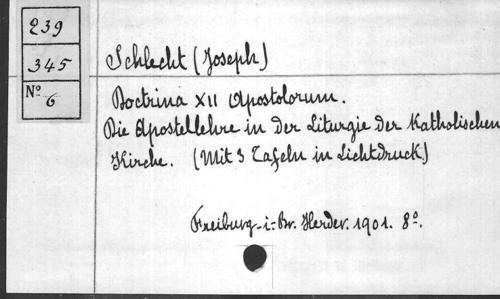 239
345
Nº 6
Schlecht (Joseph)
Doctrina XII Apostolorum.
Die Apostellehre in der Liturgie der katholischen
Kirche. (Mit 3 Tafeln in Lichtdruck)
Freiburg-i-Br. Herder. 1901. 8º.